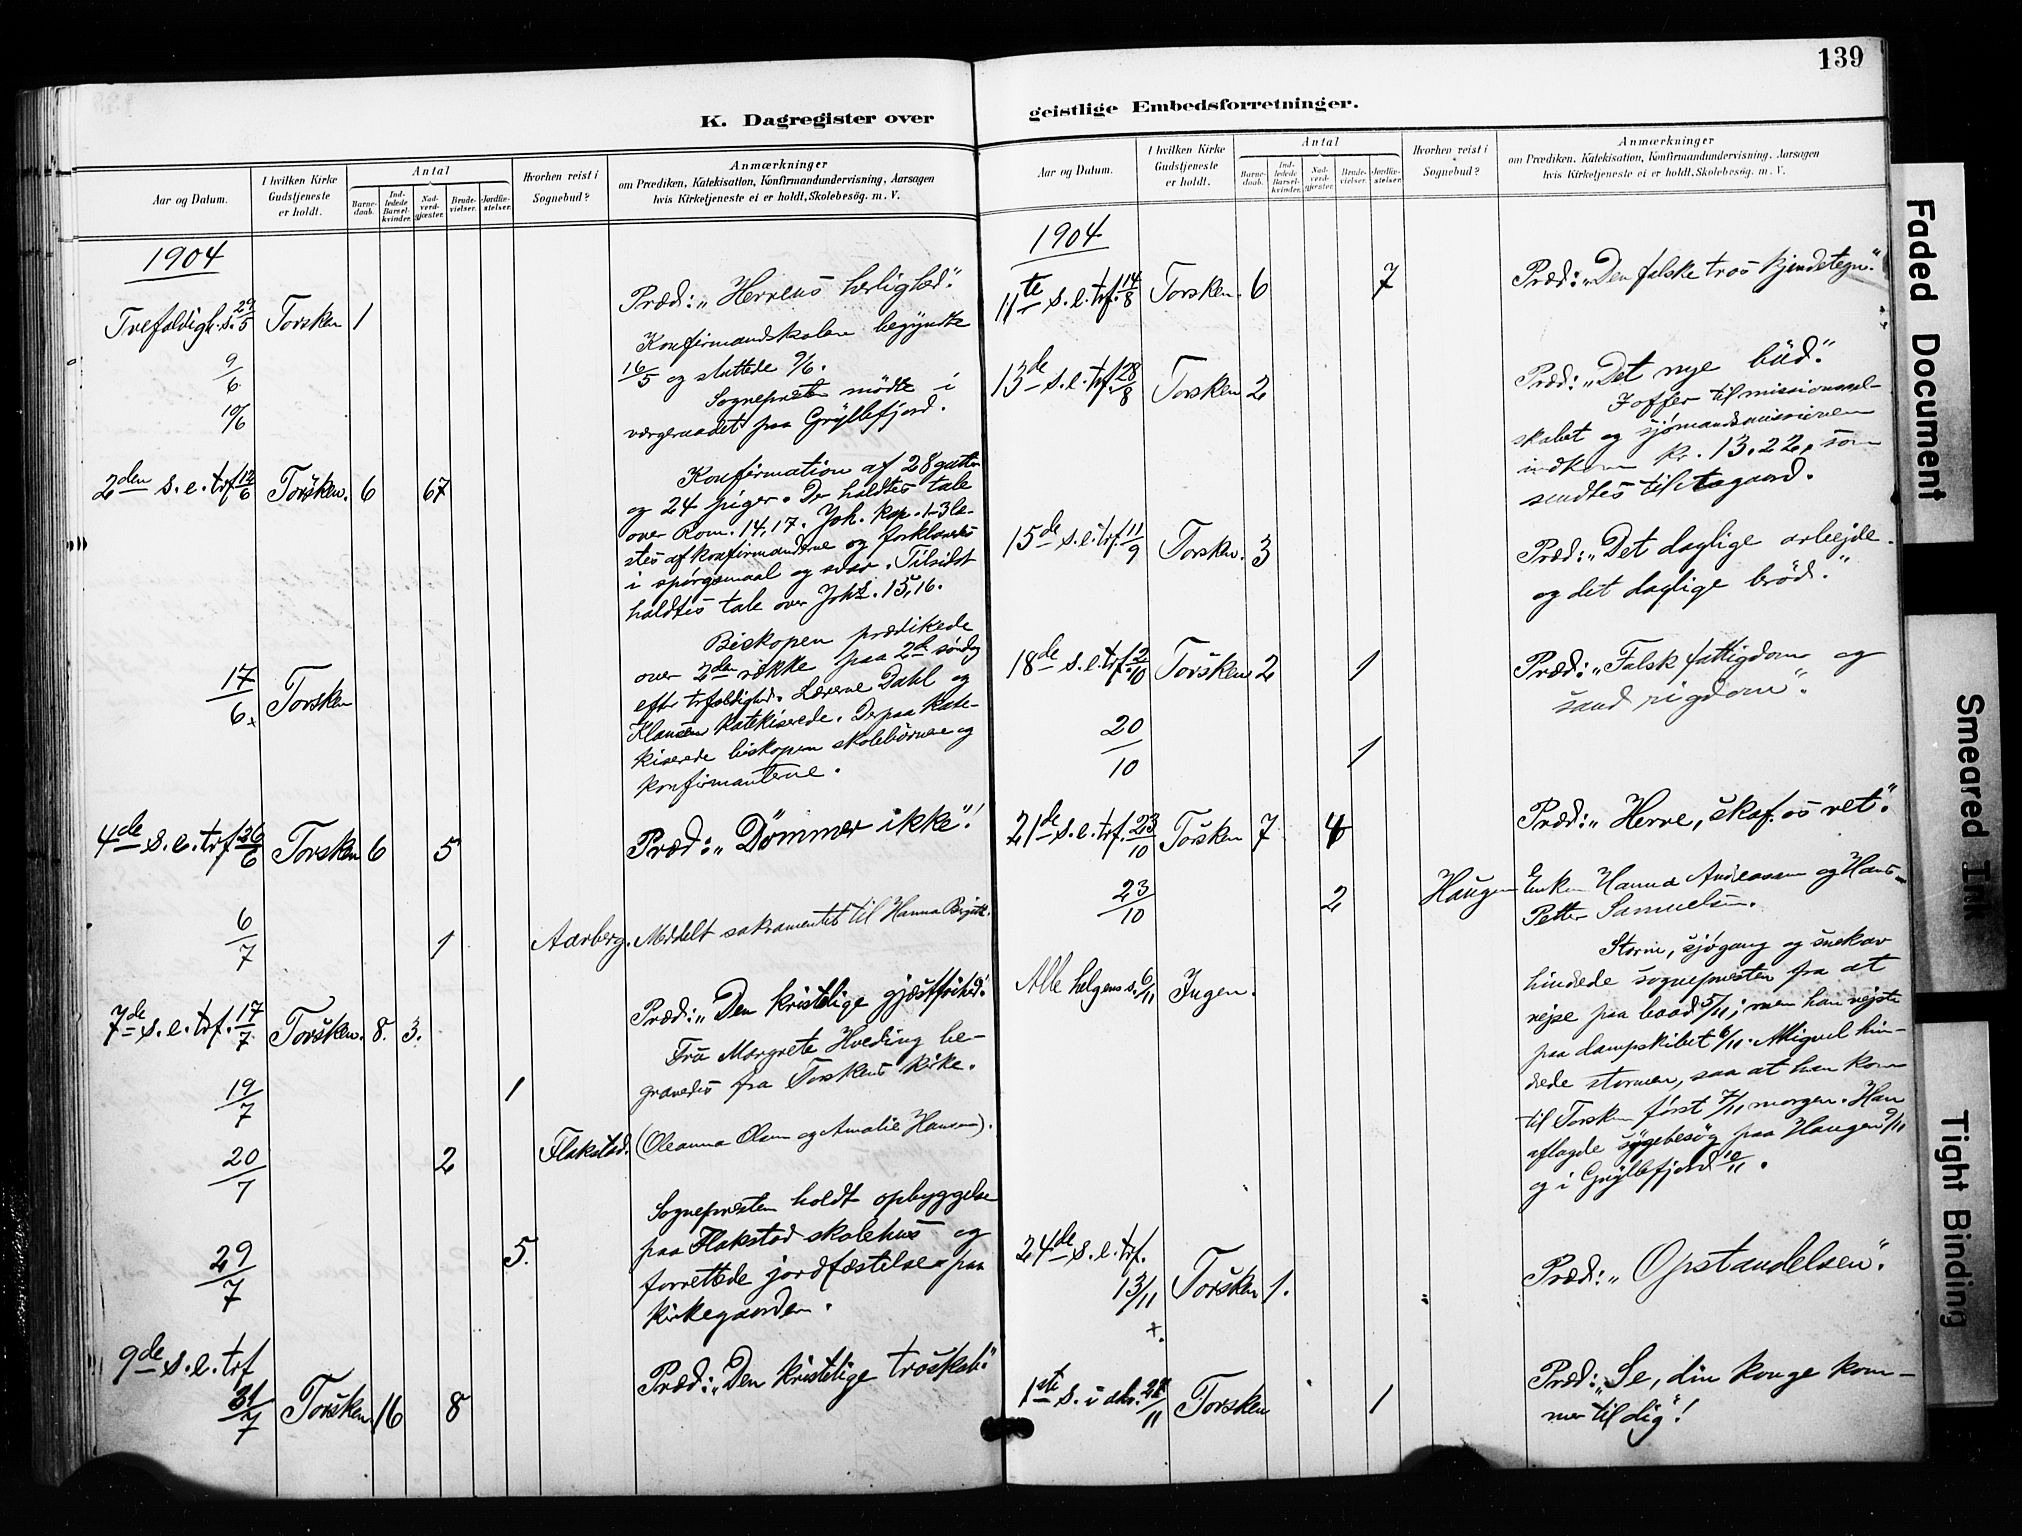 139
K. Dagregister over
geistlige Embedsforretninger.
Aar og Datum.
I hvilken Kirke
Gudstjeneste
er holdt.
Antal
Barne-
daab.
Ind-
ledede
Barsel-
kvinder.
Nad-
verd-
gjæster.
Brude-
vielser.
Jordfæ-
stelser.
Hvorhen reist i
Sognebud?
Anmærkninger
om Prædiken, Katekisation, Konfirmandundervisning, Aarsagen
hvis Kirketjeneste ei er holdt, Skolebesøg. m. V.
1904
Trefoldigh. s. 29/5 Torsken 1
Præd: „Herrens herlighed."
Konfirmandskolen begyndte
16/5 og sluttede 9/6.
9/6
Sognepresten mödte i
10/6
værgeraadet paa Gryllefjord.
2den s. e. trf 12/6 Torsken. 6 67
Konfirmation af 28 gutter
og 24 piger. Der holdtes tale
over Rom. 14,17. Joh. kap. 1-3 læ-
stes af konfirmanderne og forklaredes
i spörgsmaal og svar. Tilsidst
holdtes tale over Joh. 15,16.
17/6 Torsken
Biskopen prædikede
over 2den række paa 2d söndag
efter trefoldighed. Lærerne Dahl og
Klausen katekiserede. Derpaa kate-
kiserede biskopen skolebörnene og
konfirmanterne.
4de s. e. trf 26/6 Torsken 6 5
Præd: „Dömmer ikke"!
6/7 1 Aarberg. Meddelt sakramentet til Hanna Birgitte.
7de s. e. trf. 17/7 Torsken. 8. 3.
Præd: „Den kristelige gjæstfrihed."
19/7 1
Fru Margrete Hveding be-
gravedes fra Torskens kirke.
20/7 2 Flakstad. (Oleanna Olsen og Amalie Hansen).
29/7 5.
Sognepresten holdt opbyggelse
paa Flakstad skolehus og
forrettede jordfæstelse paa
kirkegaarden.
9de s. e. trf
31/7 Torsken. 16 8
Præd: „Den kristelige troskab"
Aar og Datum.
I hvilken Kirke
Gudstjeneste
er holdt.
Antal
Barne-
daab.
Ind-
ledede
Barsel-
kvinder.
Nad-
verd-
gjæster.
Brude-
vielser.
Jordfæ-
stelser.
Hvorhen reist i
Sognebud?
Anmærkninger
om Prædiken, Katekisation, Konfirmandundervisning, Aarsagen
hvis Kirketjeneste ei er holdt, Skolebesøg. m. V.
1904
11te s. e. trf. 14/8 Torsken. 6 7
Præd: „Den falske tros kjendetegn."
13de s. e. trf. 28/8 Torsken 2
Præd: „Det nye bud."
I offer til missionssel-
skabet og sjömandsmissionen
indkom kr. 13.22, som
sendtes til
15de s. e. trf. 11/9 Torsken. 3
Præd: „Det daglige arbejde
og det daglige bröd."
18de s. e. trf. 2/10 Torsken 2 1
Præd: „Falsk fattigdom og
sand rigdom".
20/10 1
21de s. e. trf. 23/10 Torsken 7 4
Præd: „Herre, skaf os ret".
23/10 2 Haugen Enken Hanna Andreassen og Hans
Petter Samuelsen.
Alle helgens s. 6/11 Ingen.
Storm, sjögang og snekav
hindrede sognepresten fra at
rejse paa baad 5/11; men han rejste
paa dampskibet 6/11. Alligevel hin-
drede stormen, saa at han kom
til Torsken först 7/11 morgen. Han
aflagde sygebesög paa Haugen 9/11
og i Gryllefjord 10/11.
24de s. e. trf.
13/11 Torsken 1.
+.
Præd: „Opstandelsen".
1ste s. i adv. 27/11 Torsken 1
Præd: „Se, din konge kom-
mer til dig"!
Faded Document
Smeared Ink
Tight Binding